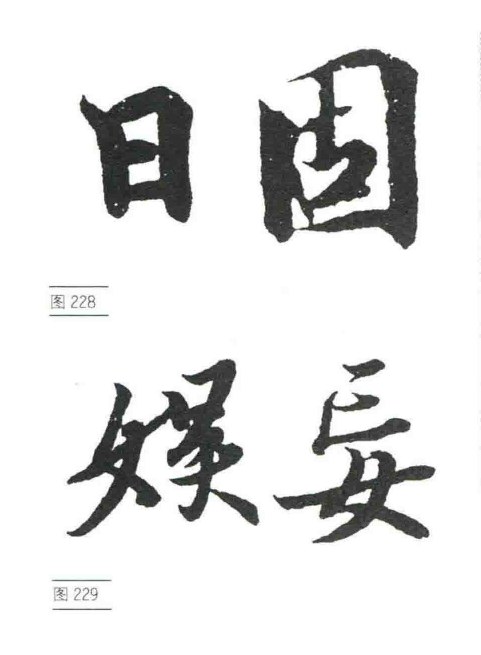 日 固
图 228
娱 妄
图 229